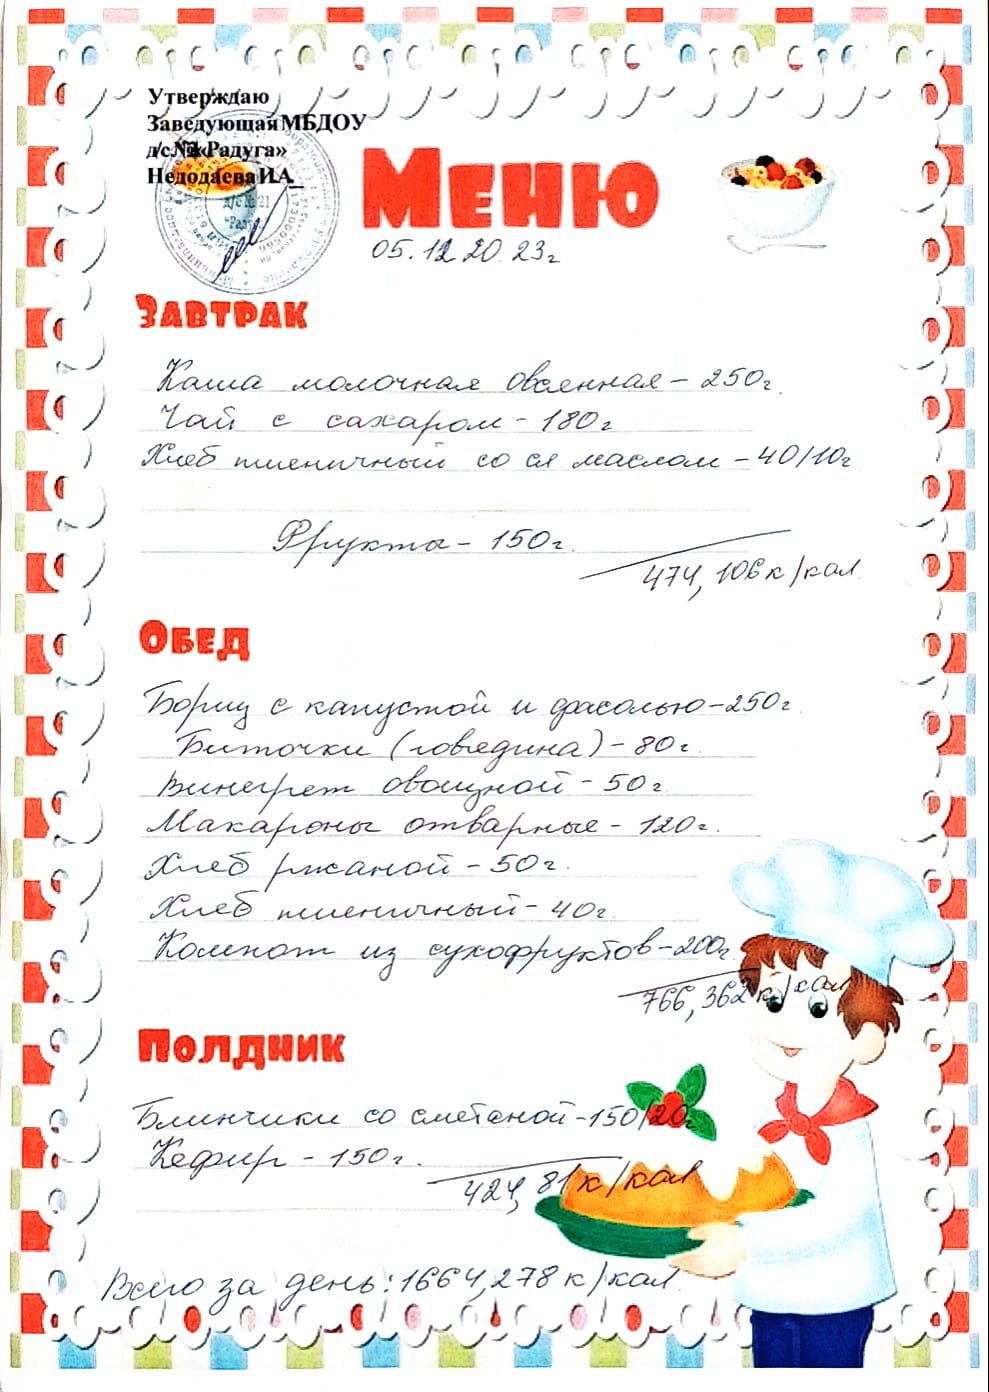 Утверждаю
Заведующая МБДОУ
д/с «Радуга»
Недодаева И.А_
д/с № 21
"Радуга"
Меню
05.12.2023г
Завтрак
Каша молочная овсянная - 250г.
Чай с сахаром - 180г
Хлеб пшеничный со сл. маслом - 40/10г
Фрукты - 150г.
474,106 к/кал
Обед
Борщ с капустой и фасолью - 250г.
Биточки (говядина) - 80г.
Винегрет овощной - 50г.
Макароны отварные - 120г.
Хлеб ржаной - 50г.
Хлеб пшеничный - 40г.
Компот из сухофруктов - 200г.
766,362 к/кал
Полдник
Блинчики со сметаной - 150/20г
Кефир - 150г.
424,81 к/кал
Всего за день: 1664,278 к/кал